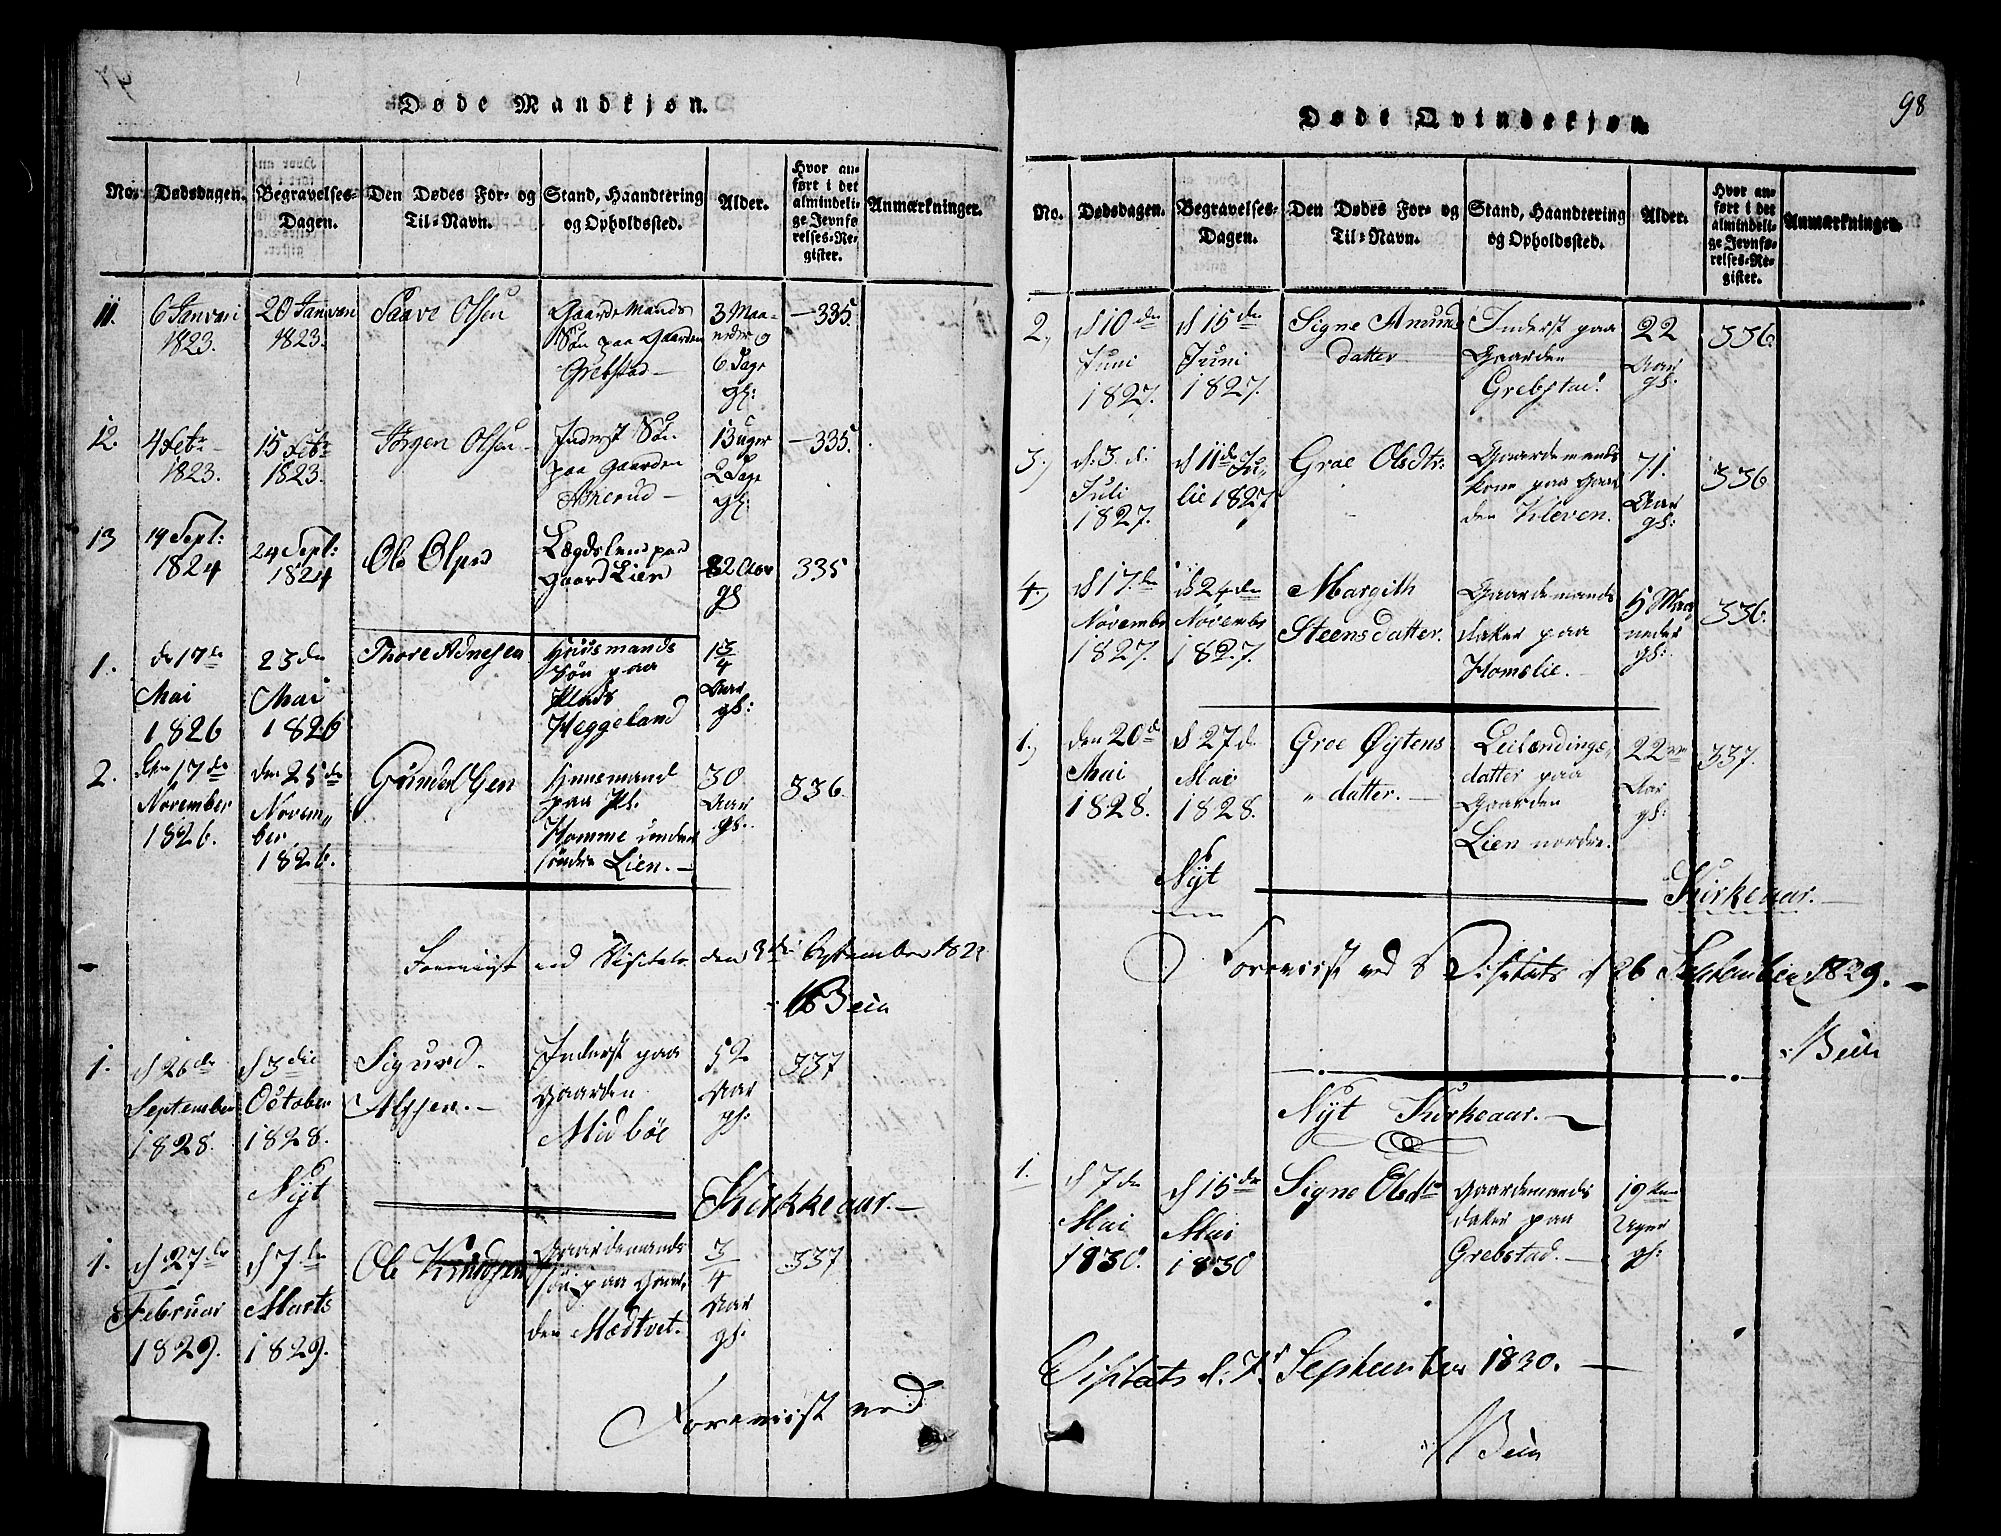 Døde Mandkjøn.
No. Dødsdagen. Begravelses-Dagen. Den Dødes For- og Til-Navn. Stand, Haandtering og Opholdssted. Alder. Hvor anført i det almindelige Jevnførelses-Register. Anmærkninger.
11. 6 Januari 1823. 20 Januari 1823. Saave Olsen Gaardemands Søn paa Gaarden Grebstad – 3 Maaneder og 6 Dage gl: – 335.
12. 4 Febr 1823. 15 Febr 1823. Jørgen Olsen – Inderst Søn paa Gaarden – 13 uger 2 Dage gl: – 335.
13 14 Sept: 1824 24 Sept: 1824 Ole Olsen Lægdslem paa Gaard Lien 82 Aar gl 335
1. d 17de Mai 1826 23de Mai 1826 Thore Huusmands Søn paa Plads Heggeland 1 3/4 Aar gl:
2. den 17de November 1826. den 25de November 1826. Huusmand paa Pl: Homme under søndre Lien. – 30 Aar gl. 336.
Foreviist ved Visitats den 3die September
Bein
1. d 26de September 1828. d 3die October 1828. Sigurd Inderst paa Gaarden Midbøe 52 Aar gl: 337
Nyt Kirkkeaar. –
1. d. 27de Februar 1829. d. 7de Marts 1829. Ole Knudsen Gaardemands Søn paa Gaarden Mædtvet. 3/4 Aar gl: 337
Foreviist ved
98
Døde Qvindekjøn.
No. Dødsdagen. Begravelses-Dagen. Den Dødes For- og Til-Navn. Stand, Haandtering og Opholdssted. Alder. Hvor anført i det almindelige Jevnførelses-Register. Anmærkningen.
2. d 10de Juni 1827. d 15de Juni 1827. Signe Amunds datter Inderst paa Gaarden Grebstad. 22 Aar gl. 336.
3.) d. 3. d. Juli 1827. d 11de Julie 1827 Groe Olsdtr. Gaardemands kone paa Gaarden Kleven. 71. Aar gl: 336
4.) d 17.de Novembr 1827. d 24de Novembr 1827. Margith Steensdatter. Gaardemands datter paa Homelie. – 5 Maaneder gl: 336.
1.) den 20de Mai 1828. d 27d. Mai 1828. Groe Øystens „ datter. – Leilændings datter paa Gaarden Lien nordre. 22 Aar gl: 337.
Nyt Kirkeaar. –
Foreviist ved Visitats d 26 September 1829. –
Bein
Nyt Kirkeaar. –
1. d 7de Mai 1830. d 15de Mai 1830 Signe Olsdtr Gaardemands datter paa Grebstad. – 19 Uger gl:
Visitats d. 7d September 1830. –
Bein